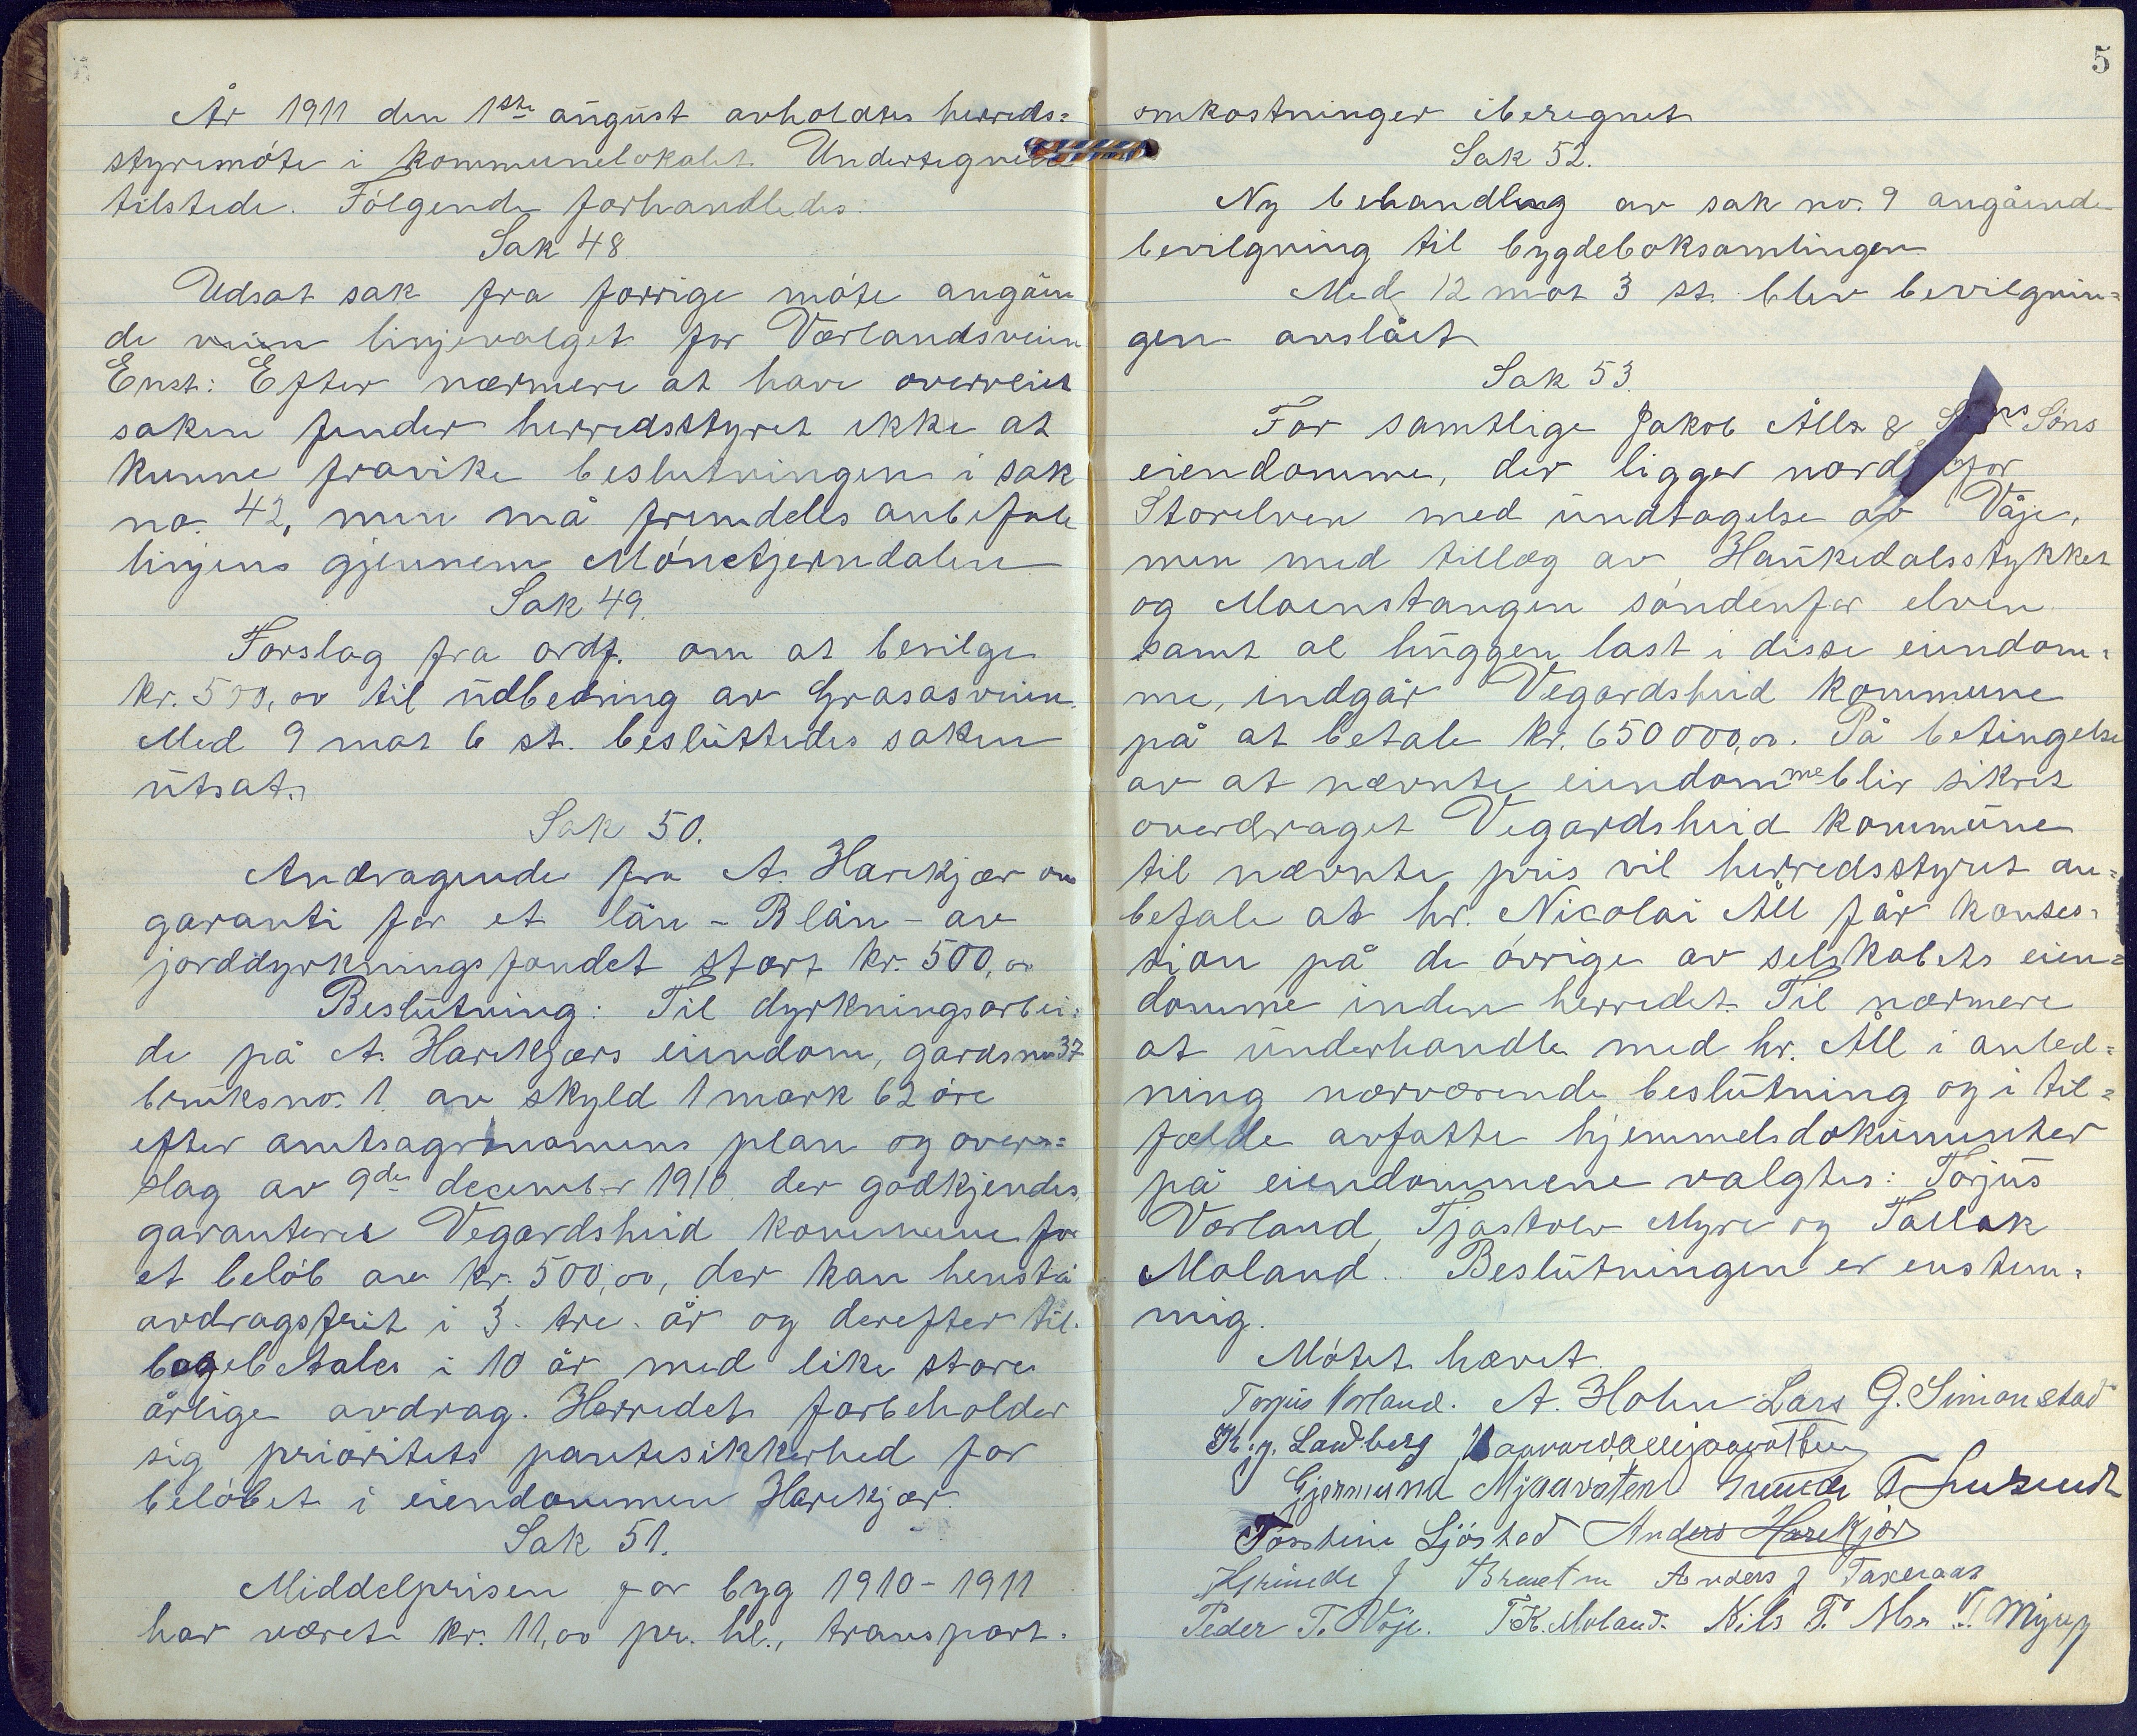 År 1911 den 1ste august avholdtes herreds=
styremöte i kommunelokalet. Undertegnede
tilstede. Fölgende forhandledes:
Sak 48
Udsat sak fra forrige möte angåen
de linjevalget for Vorlandsveien
Enst: Efter nærmere at have overveiet
saken finder herredsstyret ikke at
kunne fravike beslutningen i sak
no. 42, men må fremdeles anbefale
linjens gjennem Mönetjerndalen
Sak 49.
Forslag fra ordf. om at bevilge
kr. 500,00 til udbedring av Grasåsveien.
Med 9 mot 6 st. beslüttedes saken
ütsat.
Sak 50.
Andragende fra A. Harekjær om
garanti for et lån - B lån - av
jorddyrkningsfondet stort kr. 500,00
Beslütning: Til dyrkningsarbei=
de på A. Harekjærs eiendom, gardsno 37
brüksno. 1. av skyld 1 mark 62 öre
efter amtsagronomens plan og overs=
slag av 9de december 1910 der godkjendes,
garanterer Vegardsheid kommune for
et belöb av kr. 500,00, der kan henstå
avdragsfrit i 3 - tre - år og derefter til=
bagebetales i 10 år med like store
årlige avdrag. Herredet forbeholder
sig prioritets pantesikkerhed for
belöbet i eiendommen Harekjær.
Sak 51.
Middelprisen for byg 1910-1911
har været kr. 11,00 pr. hl., transport=
5
omkostninger iberegnet
Sak 52.
Ny behandling av sak no. 9 angående
bevilgning til bygdeboksamlingen
Med 12 mot 3 st. blev bevilgnin=
gen avslået
Sak 53.
For samtlige Jakob Ålls & Söns
eiendomme, der ligger nordenfor
Storelven med ündtagelse av Våje,
men med tillæg av Haukedalsstykket
og Moenstangen söndenfor elven
samt al hüggen last i disse eiendom=
me, indgår Vegardsheid kommune
på at betale kr. 650000,00. På betingelse
av at nævnte eiendomme blir sikret
overdraget Vegardsheid kommüne
til nævnte pris vil herredsstyret an=
befale at hr. Nicolai Åll får konses=
sion på de övrige av selskabets eien=
domme inden herredet. Til nærmere
at ünderhandle med hr. Åll i anled=
ning nærværende beslütning og i til=
fælde avfatte hjemmelsdokümenter
på eiendommene valgtes: Torjüs
Vorland, Tjostolv Myre og Tallak
Moland. Beslütningen er enstem=
mig.
Mötet hævet.
Torjüs Vorland. A. Holm Lars G. Simonstad
K. J. Landberg
Gjermund Mjaavaten T.
Torstein Sjöstad Anders Harekjær
J Anders J
Peder T. Voje. T.K. Moland. Nils T.